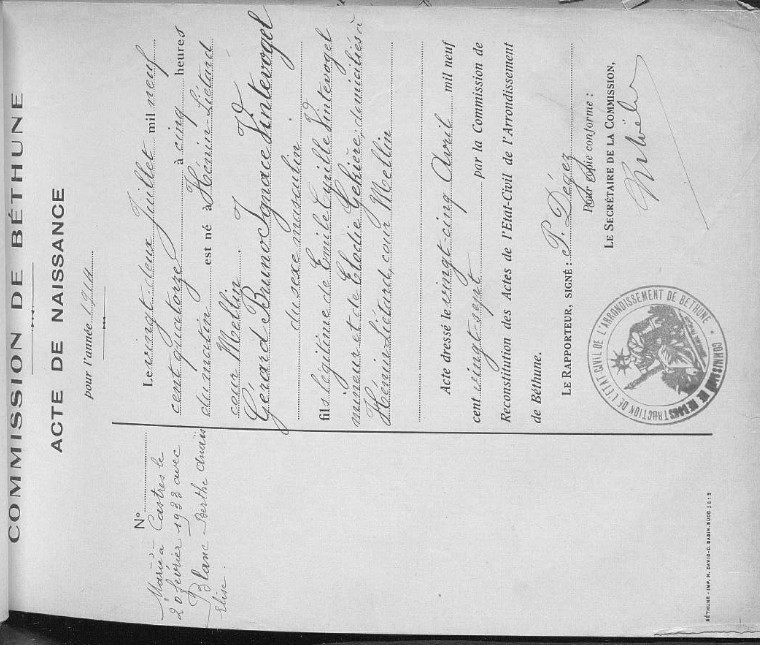 COMMISSION DE BÉTHUNE
ACTE DE NAISSANCE
pour l'année 1914
N°
Marié à Castres le
20 février 1933 avec
Blanc Berthe Anaïs
Elise.
Le vingt-deux Juillet mil neuf
cent quatorze à cinq heures
du matin est né à Hénin-Liétard
cour Mellin
Gérard Bruno Ignace Vintevogel
du sexe masculin
fils légitime de Emile Cyrille Vintevogel
mineur et de Elodie Gekière, domiciliés à
Hénin-Liétard, cour Mellin
Acte dressé le vingt-cinq Avril mil neuf
cent vingt sept par la Commission de
Reconstitution des Actes de l'Etat-Civil de l'Arrondissement
de Béthune.
LE RAPPORTEUR, SIGNÉ : P. Dégez
Pour copie conforme :
LE SECRÉTAIRE DE LA COMMISSION,
COMMISSION DE RECONSTRUCTION DE L'ÉTAT CIVIL DE L'ARRONDISSEMENT DE BÉTHUNE